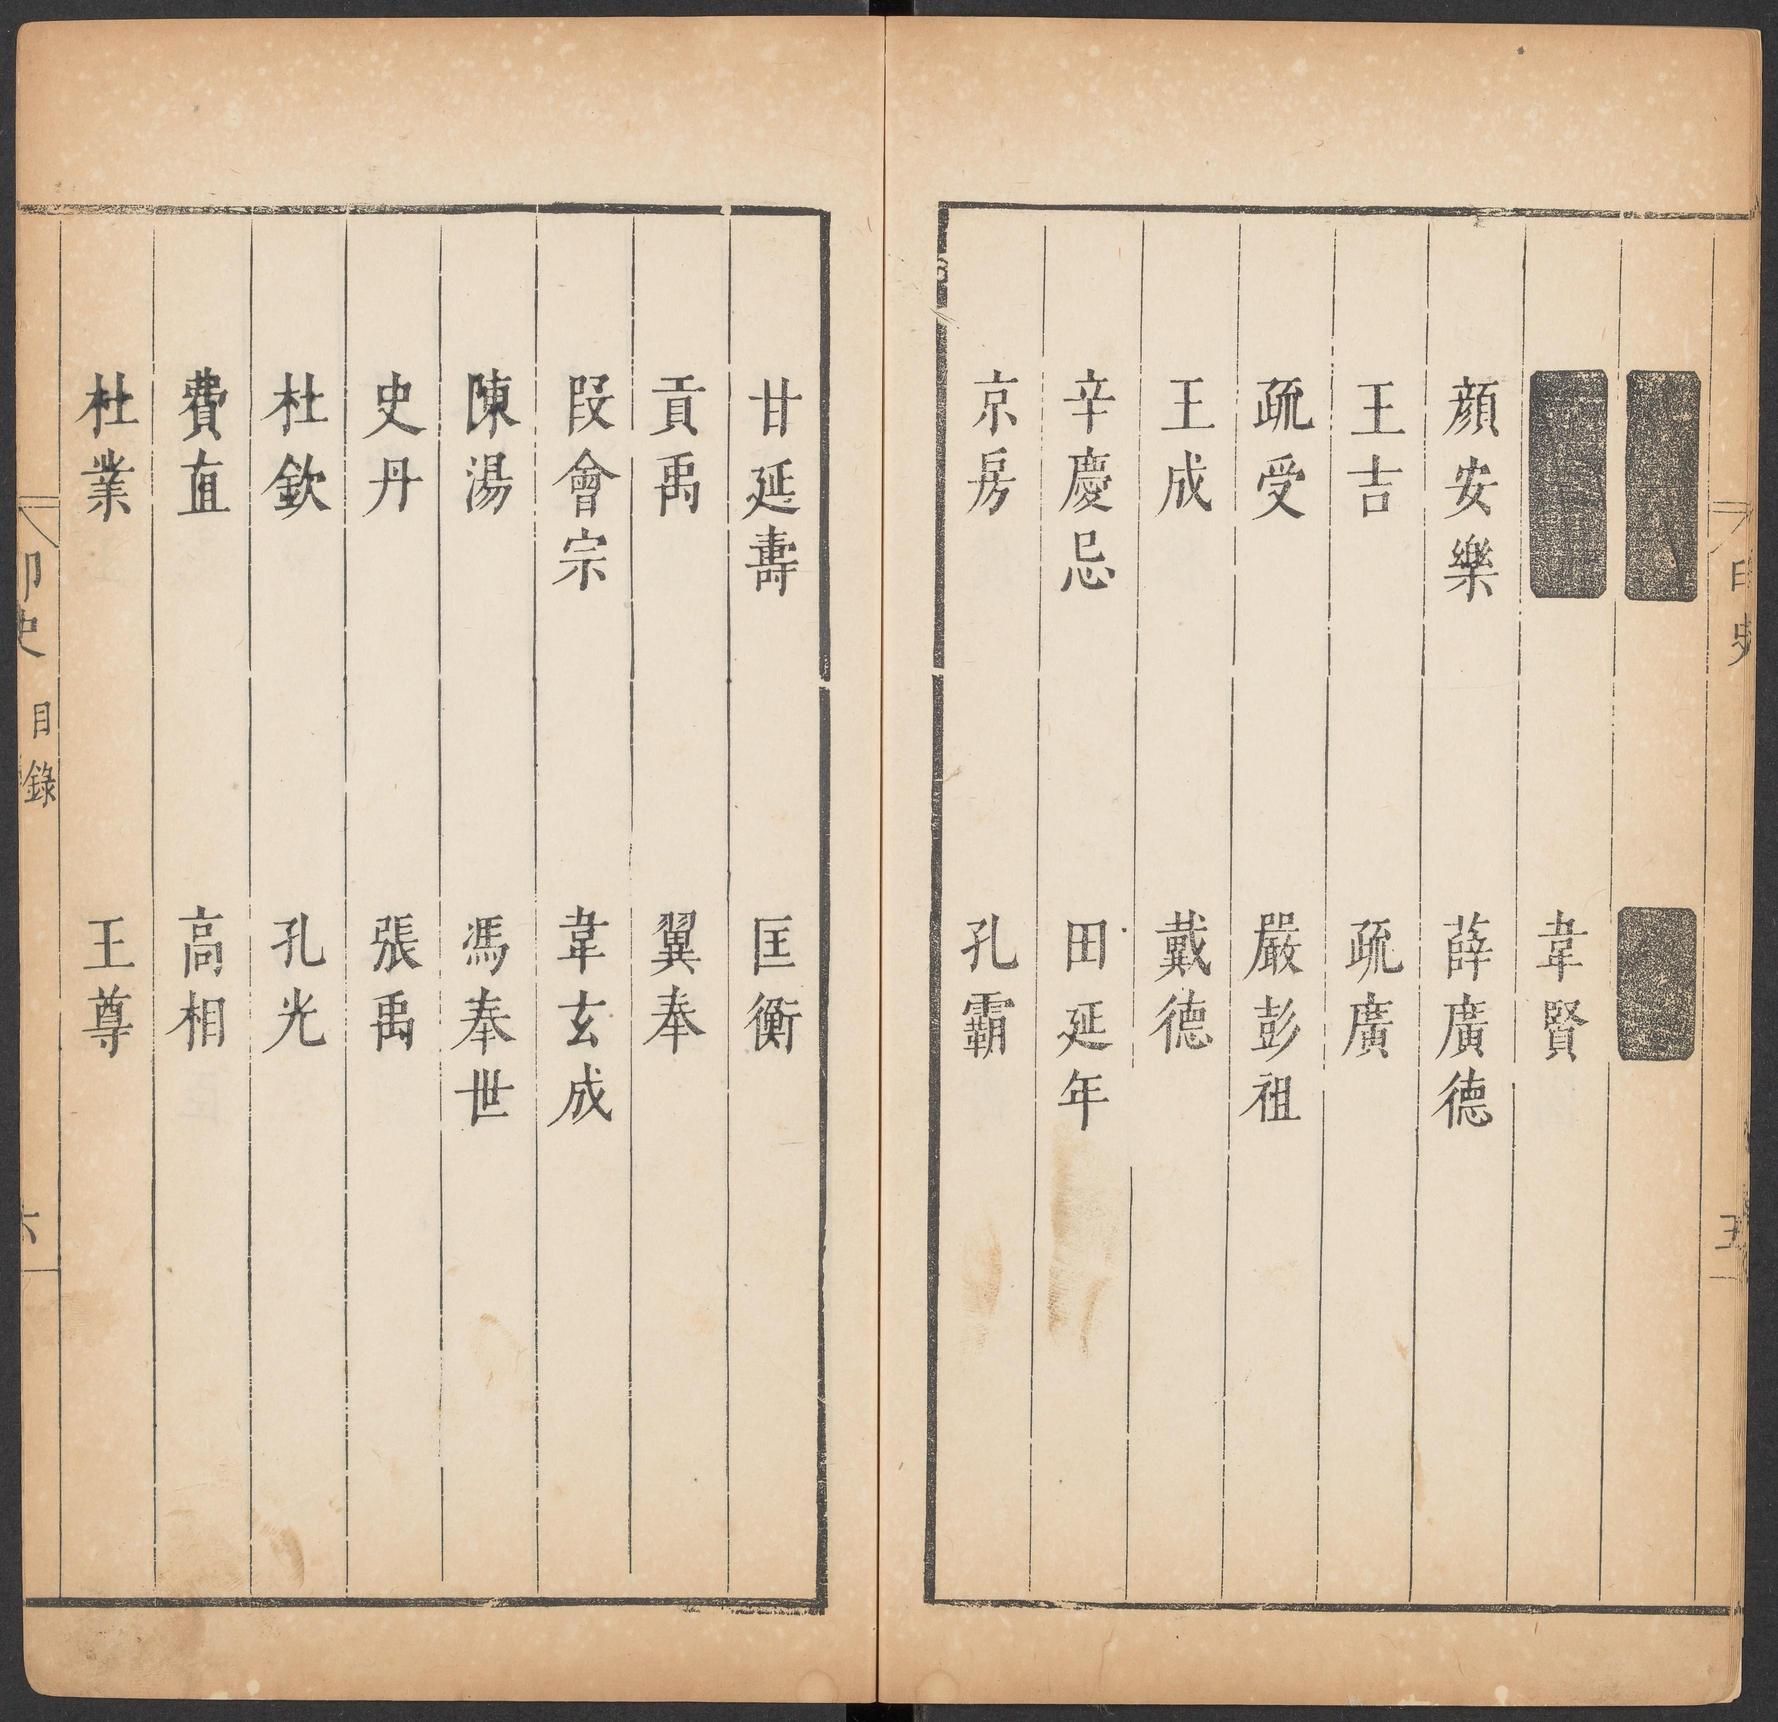 印史
五
韋賢
顏安樂
薛廣德
王吉
疏廣
疏受
嚴彭祖
王成
戴德
辛慶忌
田延年
京房
孔霸
甘延壽
匡衡
貢禹
翼奉
段會宗
韋玄成
陳湯
馮奉世
史丹
張禹
杜欽
孔光
費直
高相
杜業
王尊
印史
目錄
六